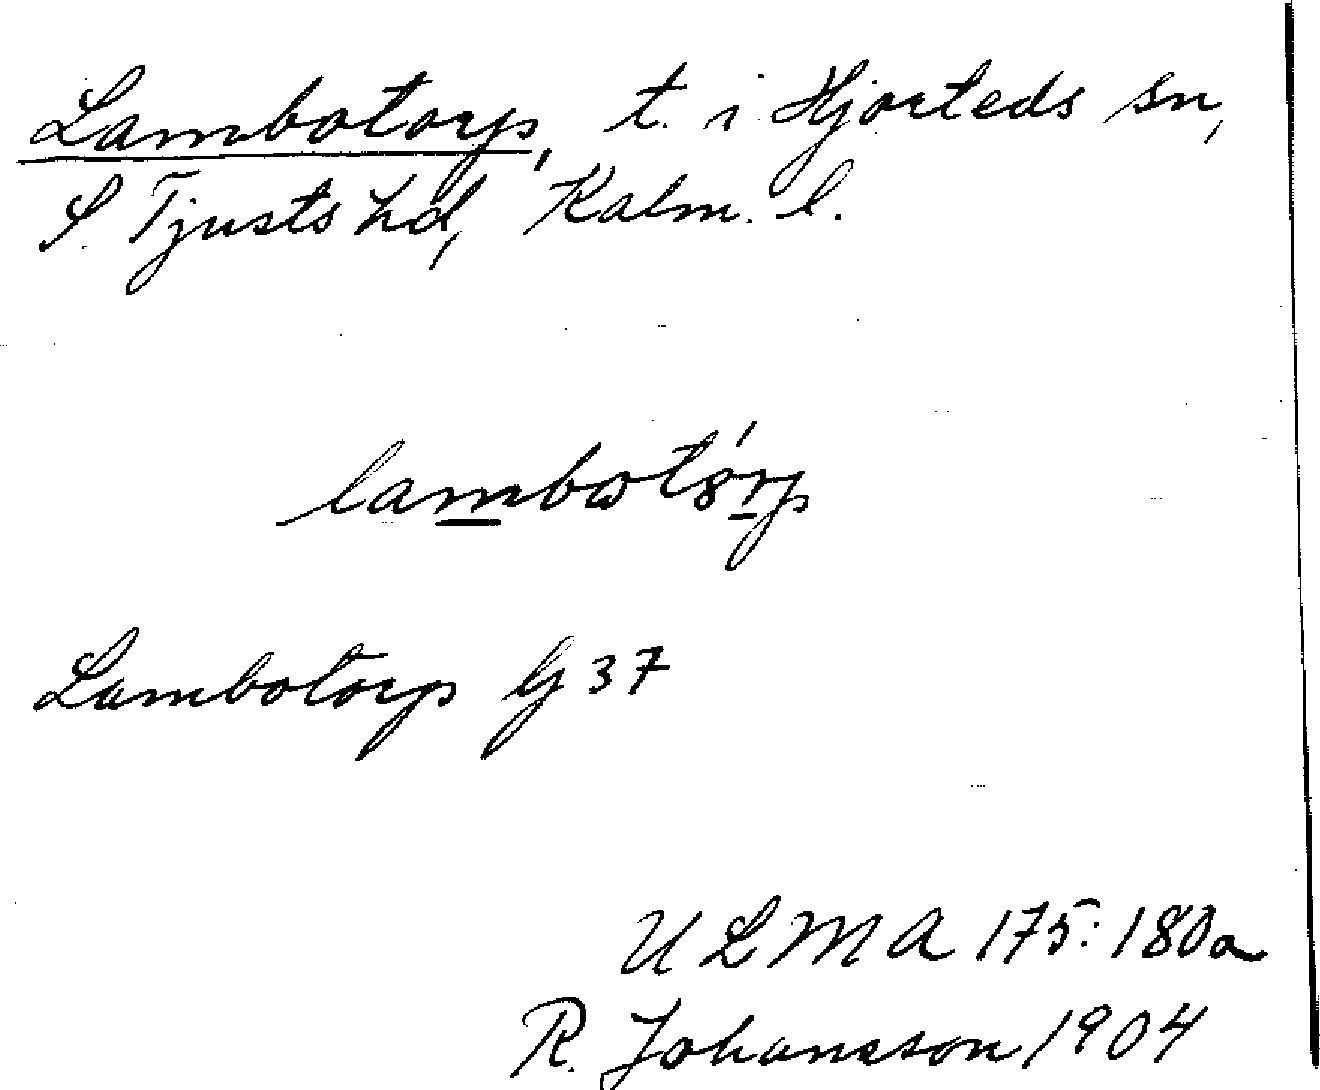 Lambotorp, t. i Hjorteds sn,
S. Tjusts hd, Kalm. l.
lambωt8́rp
Lambotorp G 37
ULMA 175:180a
R. Johansson 1904